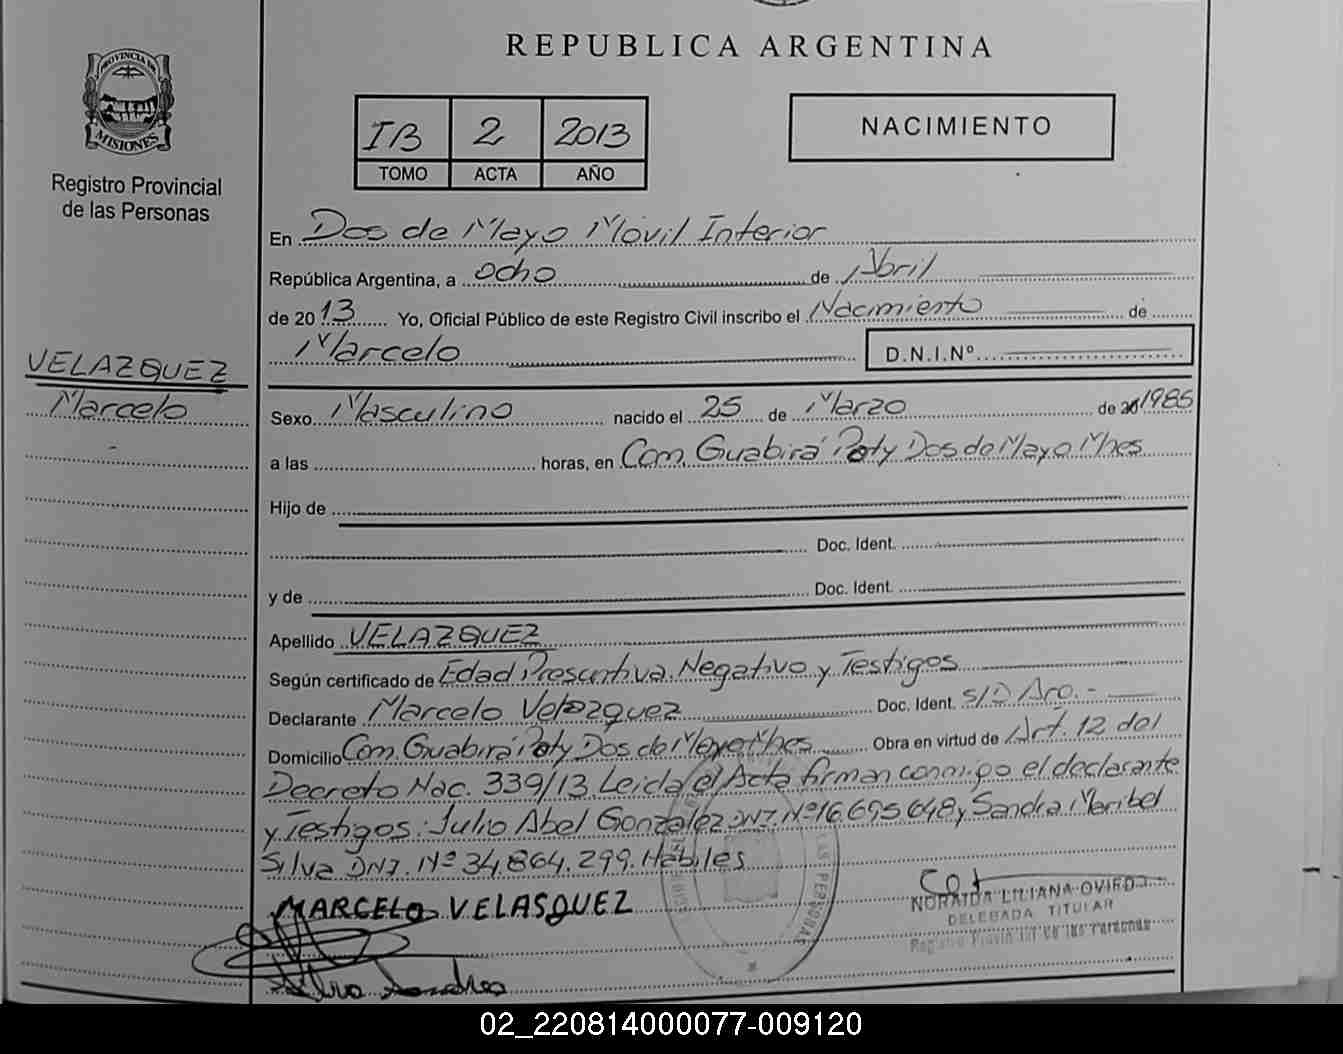 REPUBLICA ARGENTINA
PROVINCIA DE
MISIONES
Registro Provincial
de las Personas
IB 2 2013
TOMO ACTA AÑO
NACIMIENTO
En Dos de Mayo Móvil Interior
República Argentina, a ocho de Abril
de 2013 Yo, Oficial Público de este Registro Civil inscribo el Nacimiento de
Marcelo D.N.I.Nº
VELAZQUEZ
Marcelo
Sexo Masculino nacido el 25 de Marzo de 1985
a las horas, en Com. Guabirá Poty Dos de Mayo Mnes
Hijo de
Doc. Ident.
y de Doc. Ident.
Apellido VELAZQUEZ
Según certificado de Edad Presuntiva. Negativo y Testigos
Declarante Marcelo Velazquez Doc. Ident. S/D Arg.-
Domicilio Com. Guabirá Poty Dos de Mayo Mnes Obra en virtud de Art. 12 del
Decreto Nac. 339/13. Leida el Acta firman conmigo el declarante
y Testigos: Julio Abel Gonzalez DNI. Nº 16.695.648 y Sandra Maribel
Silva DNI. Nº 34.864.299. Hábiles
MARCELO VELASQUEZ
NORAIDA LILIANA OVIEDO
DELEGADA TITULAR
Registro Provincial de las Personas
LAS PERSONAS
Silva Sandra
02_220814000077-009120